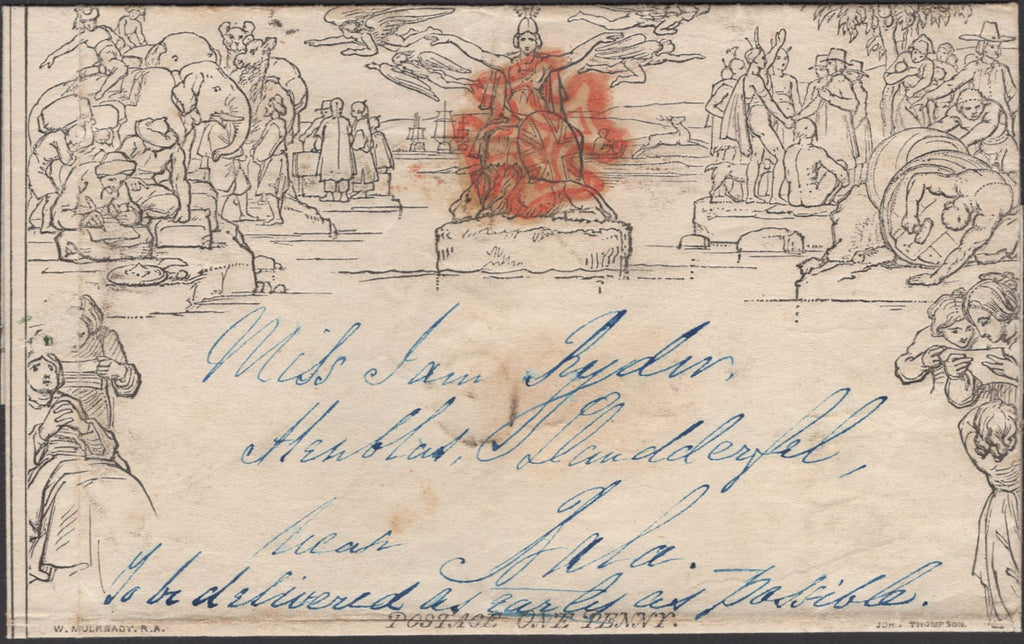 Miss Jam Ryder,
Henblas, Llandderfel,
near Bala.
To be delivered as early as possible.
POSTAGE ONE PENNY.
W. MULREADY. R.A.
JOHN THOMPSON.